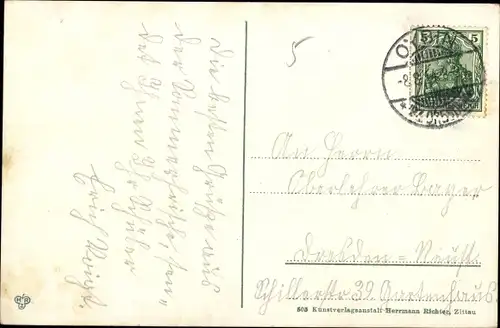 Die besten Grüße aus
der Sommerfrische, sen-
det Ihnen Ihr Schüler
Erich Voigt.
5
5 5
OYBIN
An Herrn
Oberlehrer Bayer
Dresden-Neust.
Schillerstr 39 Gartenhaus.
803 Kunstverlagsanstalt Herrmann Richter, Zittau